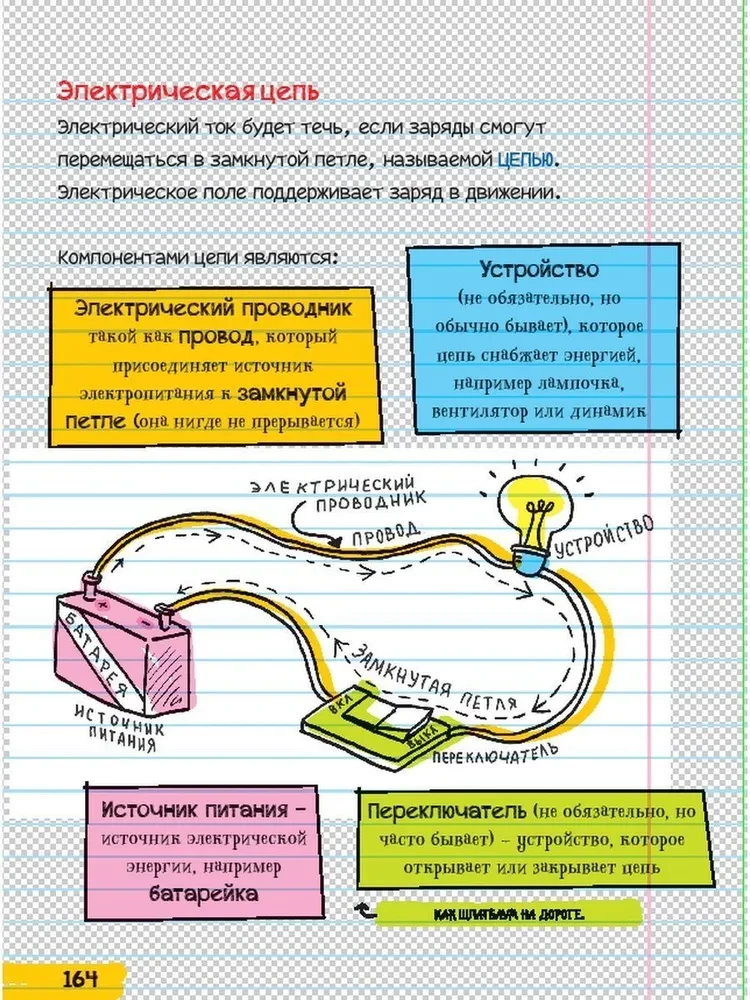 Электрическая цепь
Электрический ток будет течь, если заряды смогут
перемещаться в замкнутой петле, называемой ЦЕПЬЮ.
Электрическое поле поддерживает заряд в движении.
Компонентами цепи являются:
Электрический проводник
такой как провод, который
присоединяет источник
электропитания к замкнутой
петле (она нигде не прерывается)
Устройство
(не обязательно, но
обычно бывает), которое
цепь снабжает энергией,
например лампочка,
вентилятор или динамик
ЭЛЕКТРИЧЕСКИЙ
ПРОВОДНИК
ПРОВОД
УСТРОЙСТВО
+
-
БАТАРЕЯ
ИСТОЧНИК
ПИТАНИЯ
ЗАМКНУТАЯ ПЕТЛЯ
ВКЛ
ВЫКЛ
ПЕРЕКЛЮЧАТЕЛЬ
Источник питания –
источник электрической
энергии, например
батарейка
Переключатель (не обязательно, но
часто бывает) – устройство, которое
открывает или закрывает цепь
КАК ШЛАГБАУМ НА ДОРОГЕ.
164